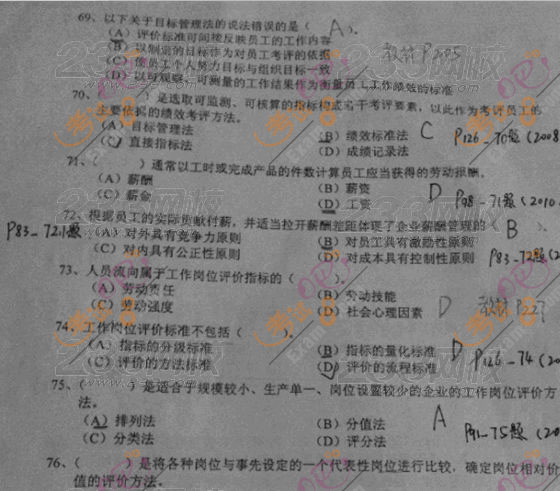 69、以下关于目标管理法的说法错误的是（ A ）。
（A）评价标准可间接反映员工的工作内容 教材P205
（B）以制定的目标作为对员工考评的依据
（C）使员工个人努力目标与组织目标一致
（D）以可观察、可测量的工作结果作为衡量员工工作绩效的标准
70、（ ）是选取可监测、可核算的指标构成若干考评要素，以此作为考评员工的
主要依据的绩效考评方法。
（A）目标管理法 （B）绩效标准法 C P126-70题（2008
（C）直接指标法 （D）成绩记录法
71、（ ）通常以工时或完成产品的件数计算员工应当获得的劳动报酬。
（A）薪酬 （B）薪资
（C）薪金 （D）工资 D P98-71题（2010.
72、根据员工的实际贡献付薪，并适当拉开薪酬差距体现了企业薪酬管理的（ B ）。
P83-72题 （A）对外具有竞争力原则 （B）对员工具有激励性原则
（C）对内具有公正性原则 （D）对成本具有控制性原则 P83-72题（2
73、人员流向属于工作岗位评价指标的（ ）。
（A）劳动责任 （B）劳动技能
（C）劳动强度 （D）社会心理因素 D 教材P227
74、工作岗位评价标准不包括（ ）。
（A）指标的分级标准 （B）指标的量化标准
（C）评价的方法标准 （D）评价的流程标准 D P126-74（20
75、（ ）是适合于规模较小、生产单一、岗位设置较少的企业的工作岗位评价方
法。
（A）排列法 （B）分值法 A
（C）分类法 （D）评分法 P91-75题（20
76、（ ）是将各种岗位与事先设定的一个代表性岗位进行比较，确定岗位相对价
值的评价方法。